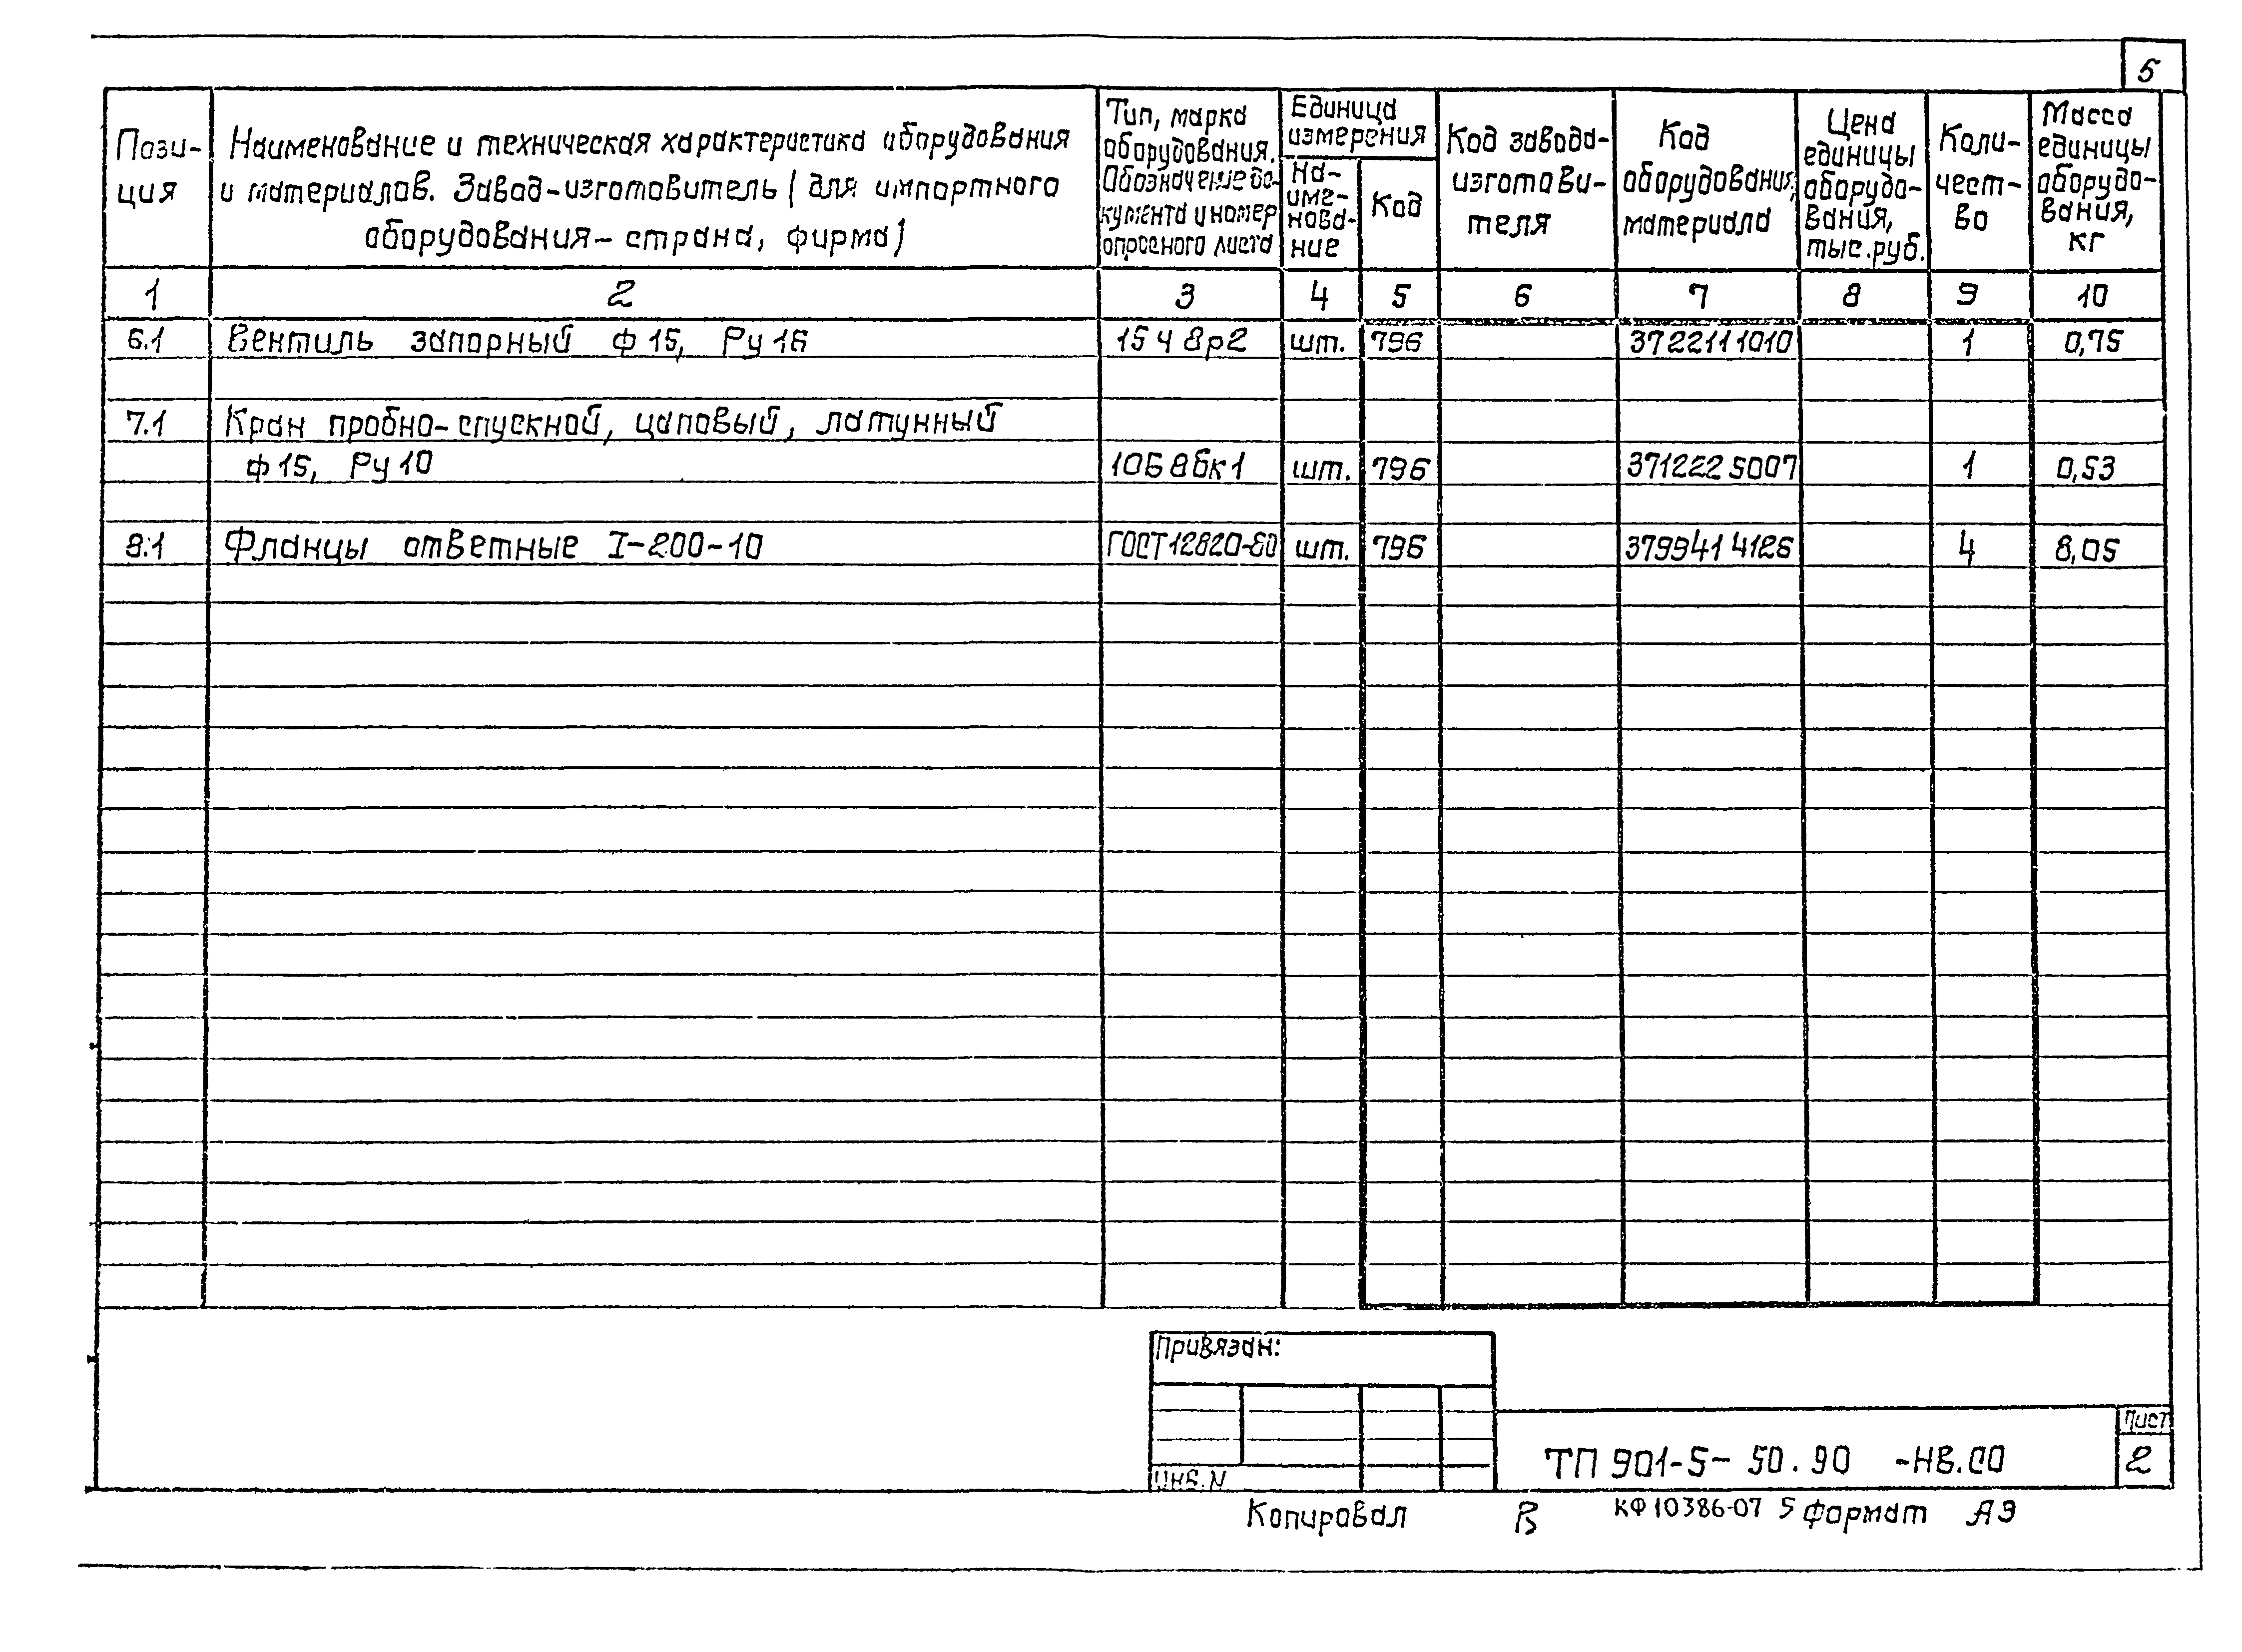 5
Пози-
ция
Наименование и техническая характеристика оборудования
и материалов. Завод-изготовитель (для импортного
оборудования - страна, фирма)
Тип, марка
оборудования.
Обозначение до-
кумента и номер
опросного листа
Единица
измерения
На-
име-
нова-
ние
Код
Код завода-
изготови-
теля
Код
оборудования,
материала
Цена
единицы
оборудо-
вания,
тыс.руб.
Коли-
чест-
во
Масса
единицы
оборудо-
вания,
кг
1 2 3 4 5 6 7 8 9 10
6.1 Вентиль запорный ф15, Ру16 15ч8р2 шт. 796 3722111010 1 0,75
7.1 Кран пробно-спускной, цаповый, латунный
ф15, Ру10 10Б8бк1 шт. 796 3712225007 1 0,53
8.1 Фланцы ответные I-200-10 ГОСТ12820-80 шт. 796 3799414126 4 8,05
Привязан:
Инв.N
ТП 901-5-50.90 -НВ.СО
Лист
2
Копировал КФ10386-07 5 формат А3